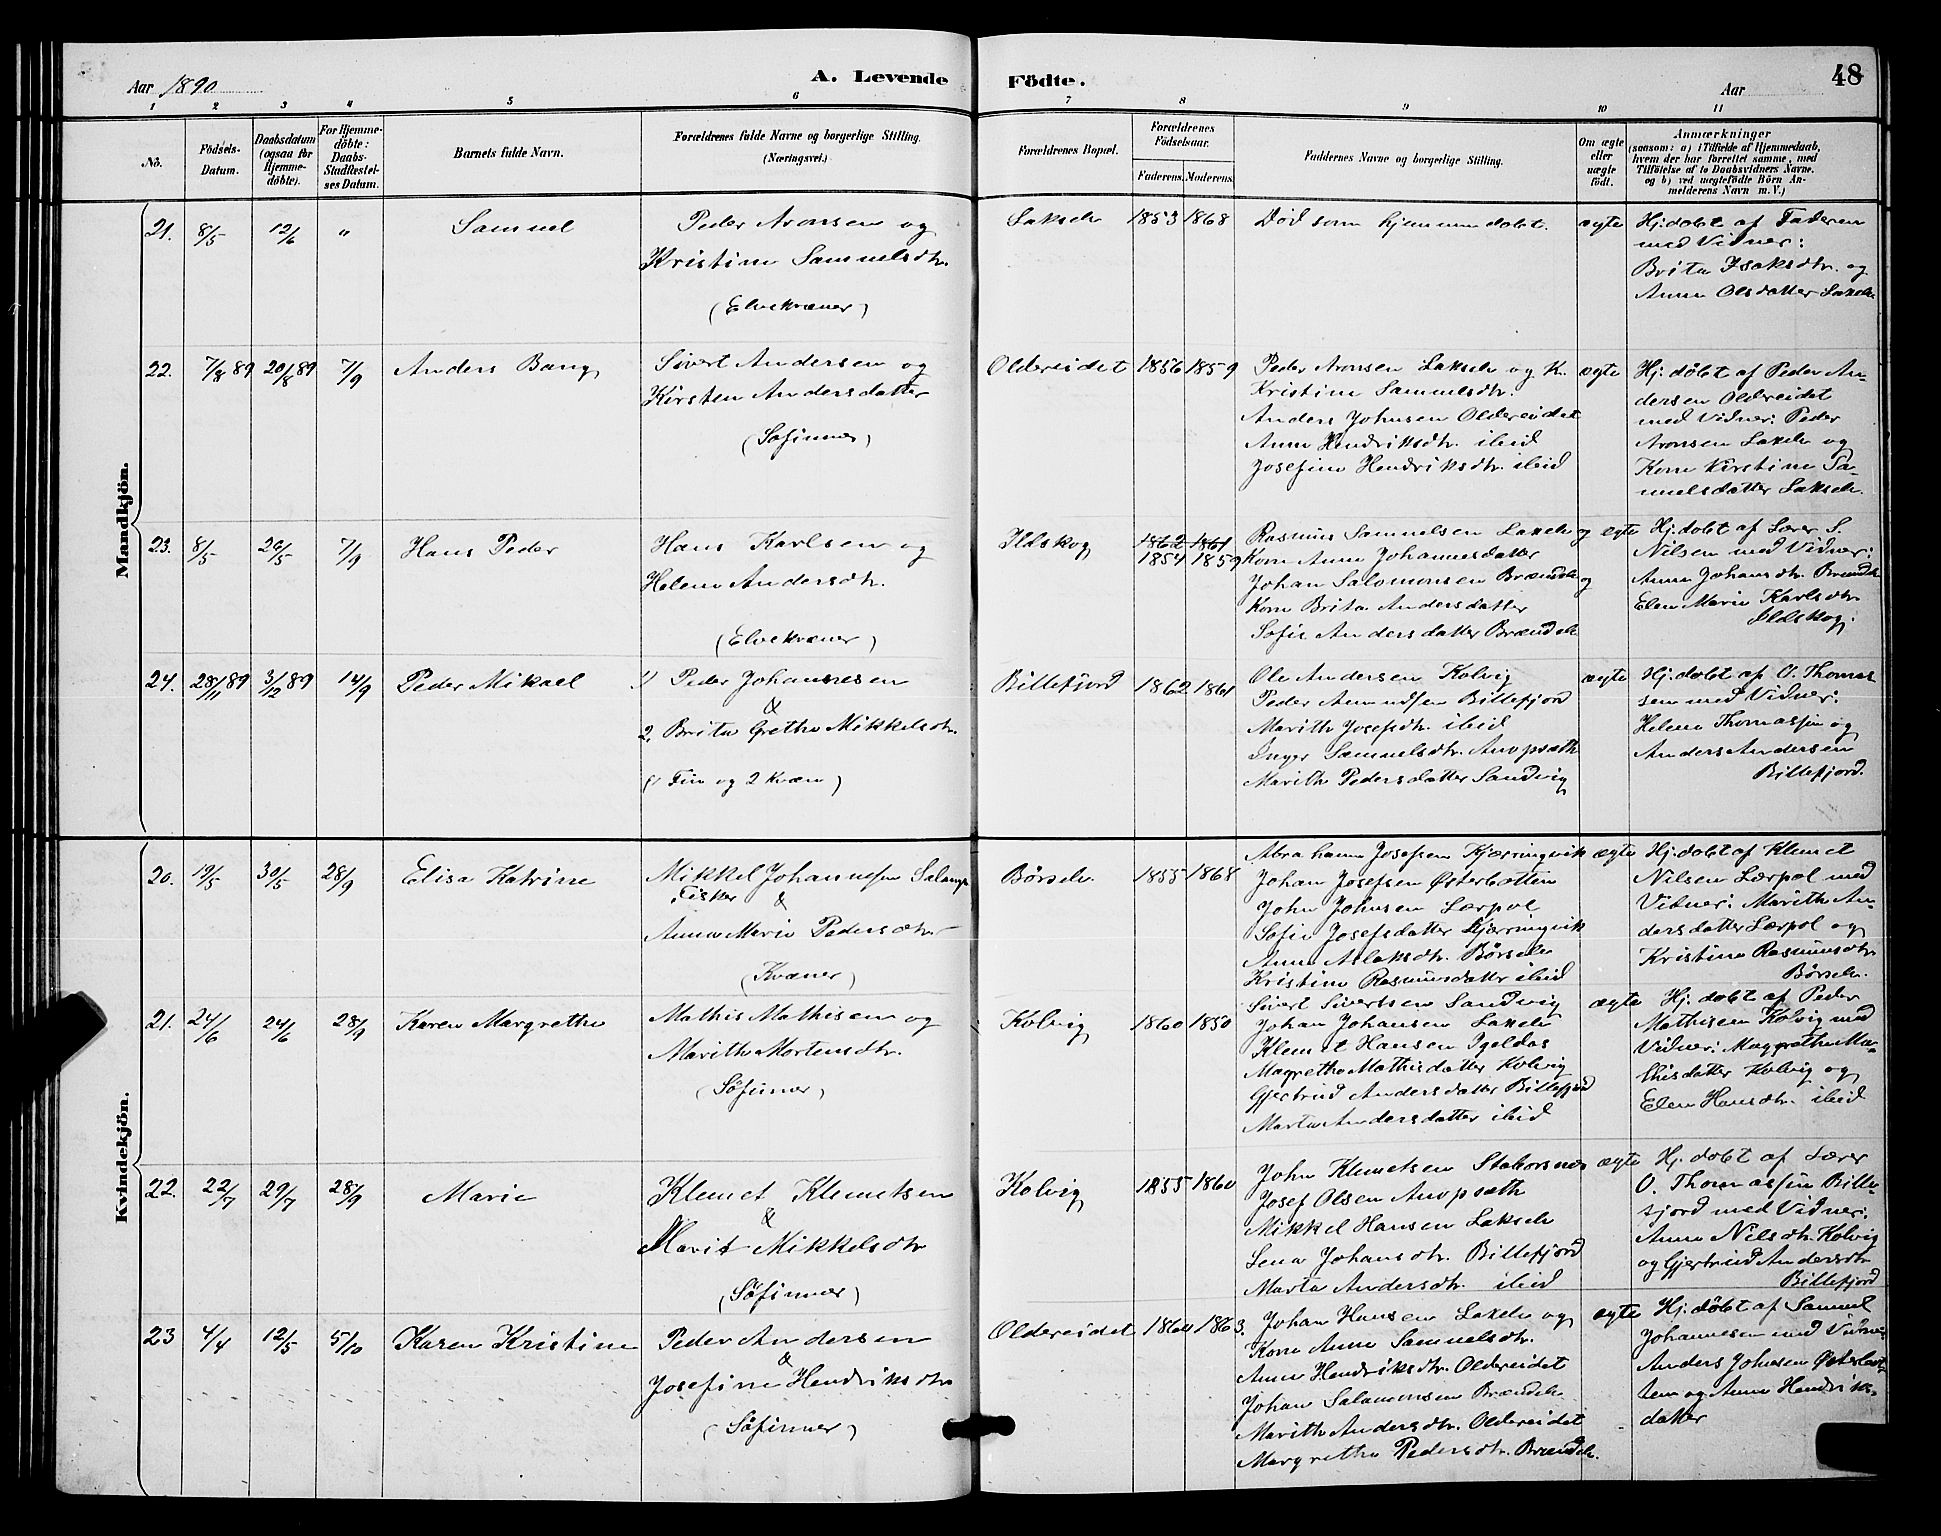 Aar 1890
A. Levende Födte.
Aar
48
1 2 3 4 5 6 7 8 9 10 11
No.
Födsels-Datum.
Daabsdatum (ogsaa for Hjemme-döbte).
For Hjemme-döbte: Daabs-Stadfæstel-ses Datum.
Barnets fulde Navn.
Forældrenes fulde Navne og borgerlige Stilling.
(Næringsvei.)
Forældrenes Bopæl.
Forældrenes Födselsaar.
Faderens. Moderens.
Faddernes Navne og borgerlige Stilling.
Om ægte eller uægte födt.
Anmærkninger
(saasom: a) i Tilfælde af Hjemmedaab,
hvem der har forrettet samme, med
Tilföielse af to Daabsvidners Navne.
og b) ved uægtefödte Börn An-
melderens Navn m. V.)
Mandkjön.
21. 8/5 12/6 " Samuel
Peder Aronsen og
Kristine Samuelsdtr.
(Elvekvæner)
Lakselv 1853 1868
Död som hjemmedöbt.
ægte
Hj. döbt af Faderen
med Vidner:
Brita Isaksdtr. og
Anne Olsdatter Lakselv
22. 7/8 89 20/8 89 7/9 Anders Bang
Sivert Andersen og
Kirsten Andersdatter
(Söfinner)
Oldereidet 1856 1859
Peder Aronsen Lakselv og K.
Kristine Samuelsdtr.
Anders Johnsen Oldereidet
Anne Hendriksdtr. ibid
Josefine Hendriksdtr. ibid
ægte
Hj. döbt af Peder An-
dersen Oldereidet
med Vidner: Peder
Aronsen Lakselv og
Kone Kirstine Sa-
muelsdatter Lakselv.
23. 8/5 26/5 7/9 Hans Peder
Hans Karlsen og
Helene Andersdtr.
(Elvekvæner)
Ildskog 1862 1861
1854 1859
Rasmus Samuelsen Lakselv og
Kone Anne Johannesdatter
Johan Salomonsen Brændelv og
Kone Brita Andersdatter
Sofie Andersdatter Brændelv
ægte
Hj. döbt af Lærer S.
Nilsen med Vidner:
Anne Johansdtr. Brændelv
Elen Marie Karlsdtr.
Ildskog.
24. 28/11 89 3/12 89 14/9 Peder Mikael
1) Peder Johannesen
&
2. Brita Grethe Mikkelsdtr.
(1 Fin og 2 Kvæn)
Billefjord 1862 1861
Ole Andersen Kolvig
Peder Amundsen Billefjord
Marith Josefsdtr. ibid
Inger Samuelsdtr. Anopsæth
Marith Pedersdatter Sandvig
ægte
Hj. döbt af O. Thomas-
sen med Vidner:
Helene Thomassen og
Anders Andersen
Billefjord.
Kvindekjön.
20. 19/5 30/5 28/9 Elisa Katrine
Mikkel Johannesen
Fisker &
Anna Marie Pedersdtr.
(Kvæner)
Börselv. 1855 1868
Abraham Josefsen Kjerringvik
Johan Josefsen Österbotten
John Johnsen Lærpol
Sofie Josefsdatter Kjerringvik
Anne Aslaksdtr. Börselv
Kristine Rasmusdatter ibid
ægte
Hj. döbt af Klemet
Nilsen Lærpol med
Vidner: Marith An-
dersdatter Lærpol og
Kristine Rasmusdtr.
Börselv.
21. 24/6 24/6 28/9 Karen Margrethe
Mathis Mathisen og
Marith Mortensdtr.
(Söfinner)
Kolvig 1860 1850
Sivert Sivertsen Sandvig
Johan Johansen Lakselv
Klemet Hansen Igeldas
Magrethe Mathisdatter Kolvig
Gjertrud Andersdatter Billefjord
Marta Andersdatter ibid
ægte
Hj. döbt af Peder
Mathisen Kolvig med
Vidner: Magrethe Ma-
thisdatter Kolvig og
Elen Hansdtr. ibid
22. 22/7 29/7 28/9 Marie
Klemet Klemetsen
&
Marit Mikkelsdtr
(Söfinner)
Kolvig 1855 1860
John Klemetsen Stabursnes
Josef Olsen Anopsæth
Mikkel Hansen Lakselv
Lena Johansdtr. Billefjord
Marta Andersdtr. ibid
ægte
Hj. döbt af Lærer
O. Thomassen Bille-
fjord med Vidner:
Anne Nilsdtr. Kolvig
og Gjertrud Andersdtr
Billefjord
23 4/4 12/5 5/10 Karen Kristine
Peder Andersen
&
Josefine Hendriksdtr
(Söfinner)
Oldereidet 1864 1863.
Johan Hansen Lakelv og
Kone Anne Samuelsdtr.
Anne Hendriksdtr. Oldereidet
Johan Salamonsen Brændelv.
Marith Andersdtr. Oldereidet
Margrethe Pedersdtr. Brændelv.
ægte
Hj. döbt af Samuel
Johannesen med Vidner
Anders Johnsen Österbot-
ten og Anne Hendriks-
datter